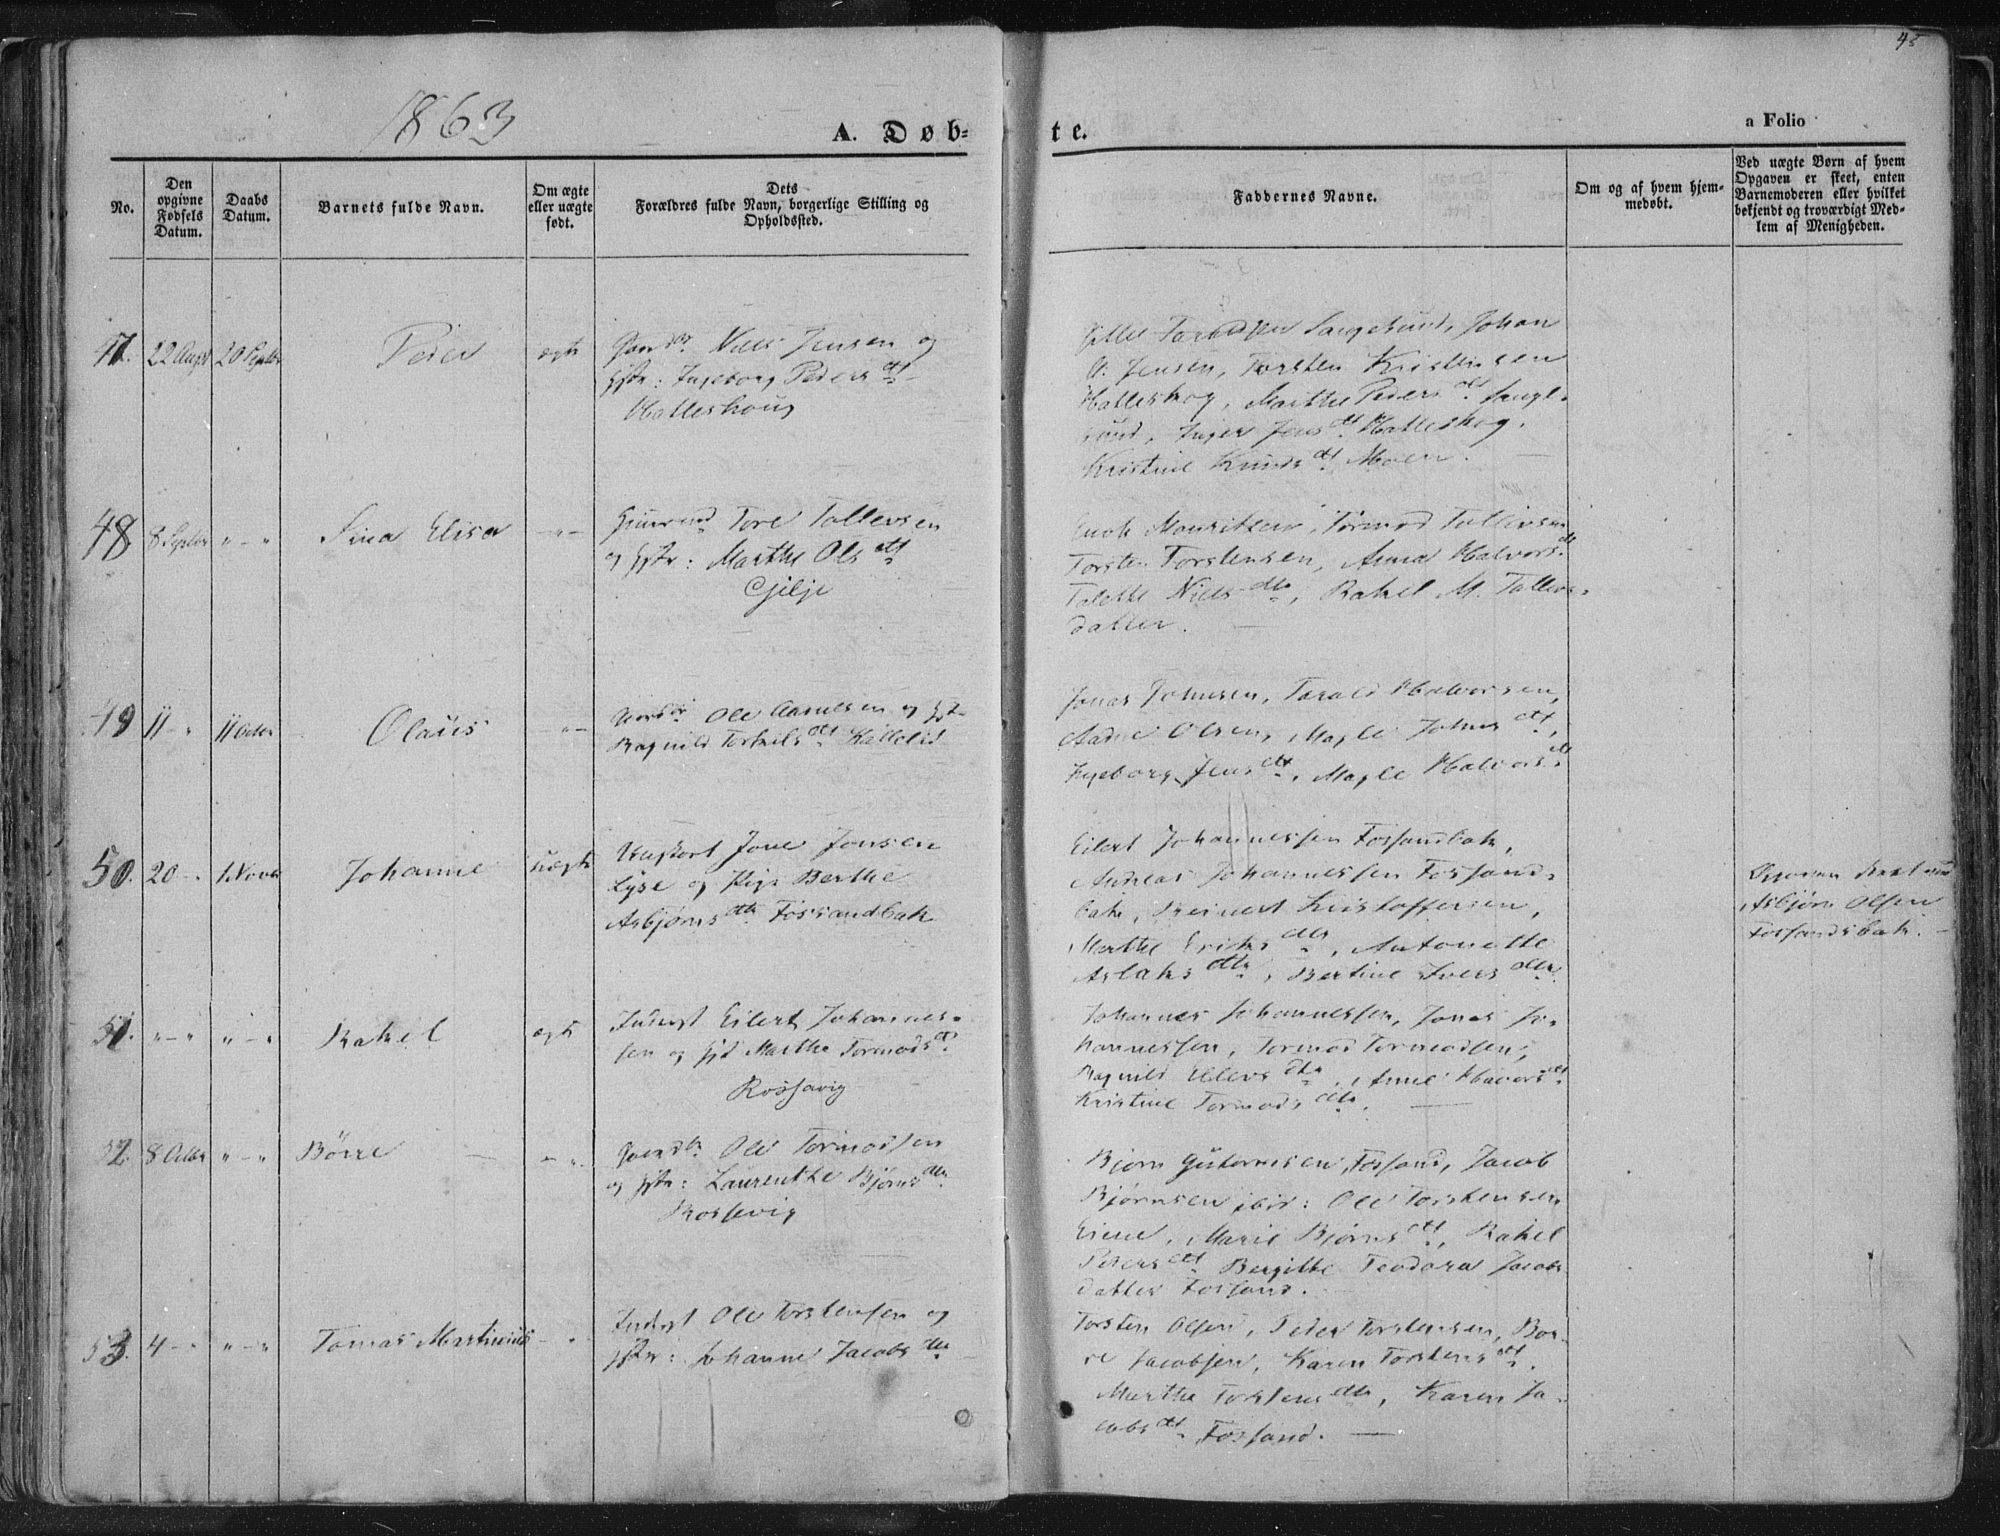 45
1863
A. Døb-
te.
a Folio
No.
Den opgivne Fødsels Datum.
Daabs Datum.
Barnets fulde Navn.
Om ægte eller uægte født.
Dets Forældres fulde Navn, borgerlige Stilling og Opholdssted.
Faddernes Navne.
Om og af hvem hjem-
medøbt.
Ved uægte Børn af hvem
Opgaven er skeet, enten
Barnemoderen eller hvilket
bekjendt og troværdigt Med-
lem af Menigheden.
47.
22 Augst
20 Septbr
Peder
ægte
Niels Jensen og
Hstr: Ingeborg Peders dtr
Halleshoug
Johan
Jensen, Torsten Kristensen
Halleskog, Marthe Peders dtr
sund, Inger Jens dtr Halleskog.
Kristine Knuds dtr Moen.
48
8 Septbr
" - "
Sina Elisa
- " -
Tore Tollevsen
og Hstr: Marthe Ols dtr
Gjilje
Enok Mouritsen, Tormod Tollevsen
Torsten Torstensen, Anna Halvors dtr
Niels dtr, Rakel M. Tollevs-
datter.
49
11 - "
11 Octbr
Olaus
- " -
Ole Aanensen og Hstr
Ragnild Torkels dtr Kallelid
Jonas Johnsen, Tarald Halvorsen,
Aadne Olsen, Magle Johns dtr,
Ingeborg Jens dtr, Magle Halvors dtr
50.
20 - "
1 Novbr
Johanne
uægte
Ungkarl Jone Jonsen
Lyse og Pige Berthe
Asbjørns dtr Fossandbak
Eilert Johannessen Fossandbak,
Andreas Johannessen Fossand-
bak, Reinert Kristoffersen,
Marthe Eriks dtr, Antonette
Aslaks dtr, Bertine Ivers dtr
Asbjørn Olsen
Fossandsbak.
51.
" - "
" - "
Rakel
ægte
Inderst Eilert Johannes-
sen og Marthe Tormods dtr
Rossavig
Johannes Johannessen, Jonas Jo-
hannessen, Tormod Tormodsen,
Ragnild Ellevs dtr, Anne Halvors dtr
Kristine Tormods dtr.
52.
8 Octbr
" - "
Börre
- " -
Ole Tormodsen
og Hstr: Laurentke Bjørns dtr
Rossavig
Bjørn Guttormsen, Fossand, Jacob
Bjørnsen ibid: Ole Torstensen
Eiene, Marie Bjørns dtr, Rakel
Peders dtr Bergitte Teodora Jacobs
datter Fossand.
53.
4 - "
" - "
Tomas Martinius
- "
Inderst Ole Torstensen og
Hstr: Johanne Jacobs dtr
Torsten Olsen, Peder Torstensen, Bør-
re Jacobsen, Karen Torstens dtr.
Marthe Torstens dtr, Karen Ja-
cobs dtr Fossand.